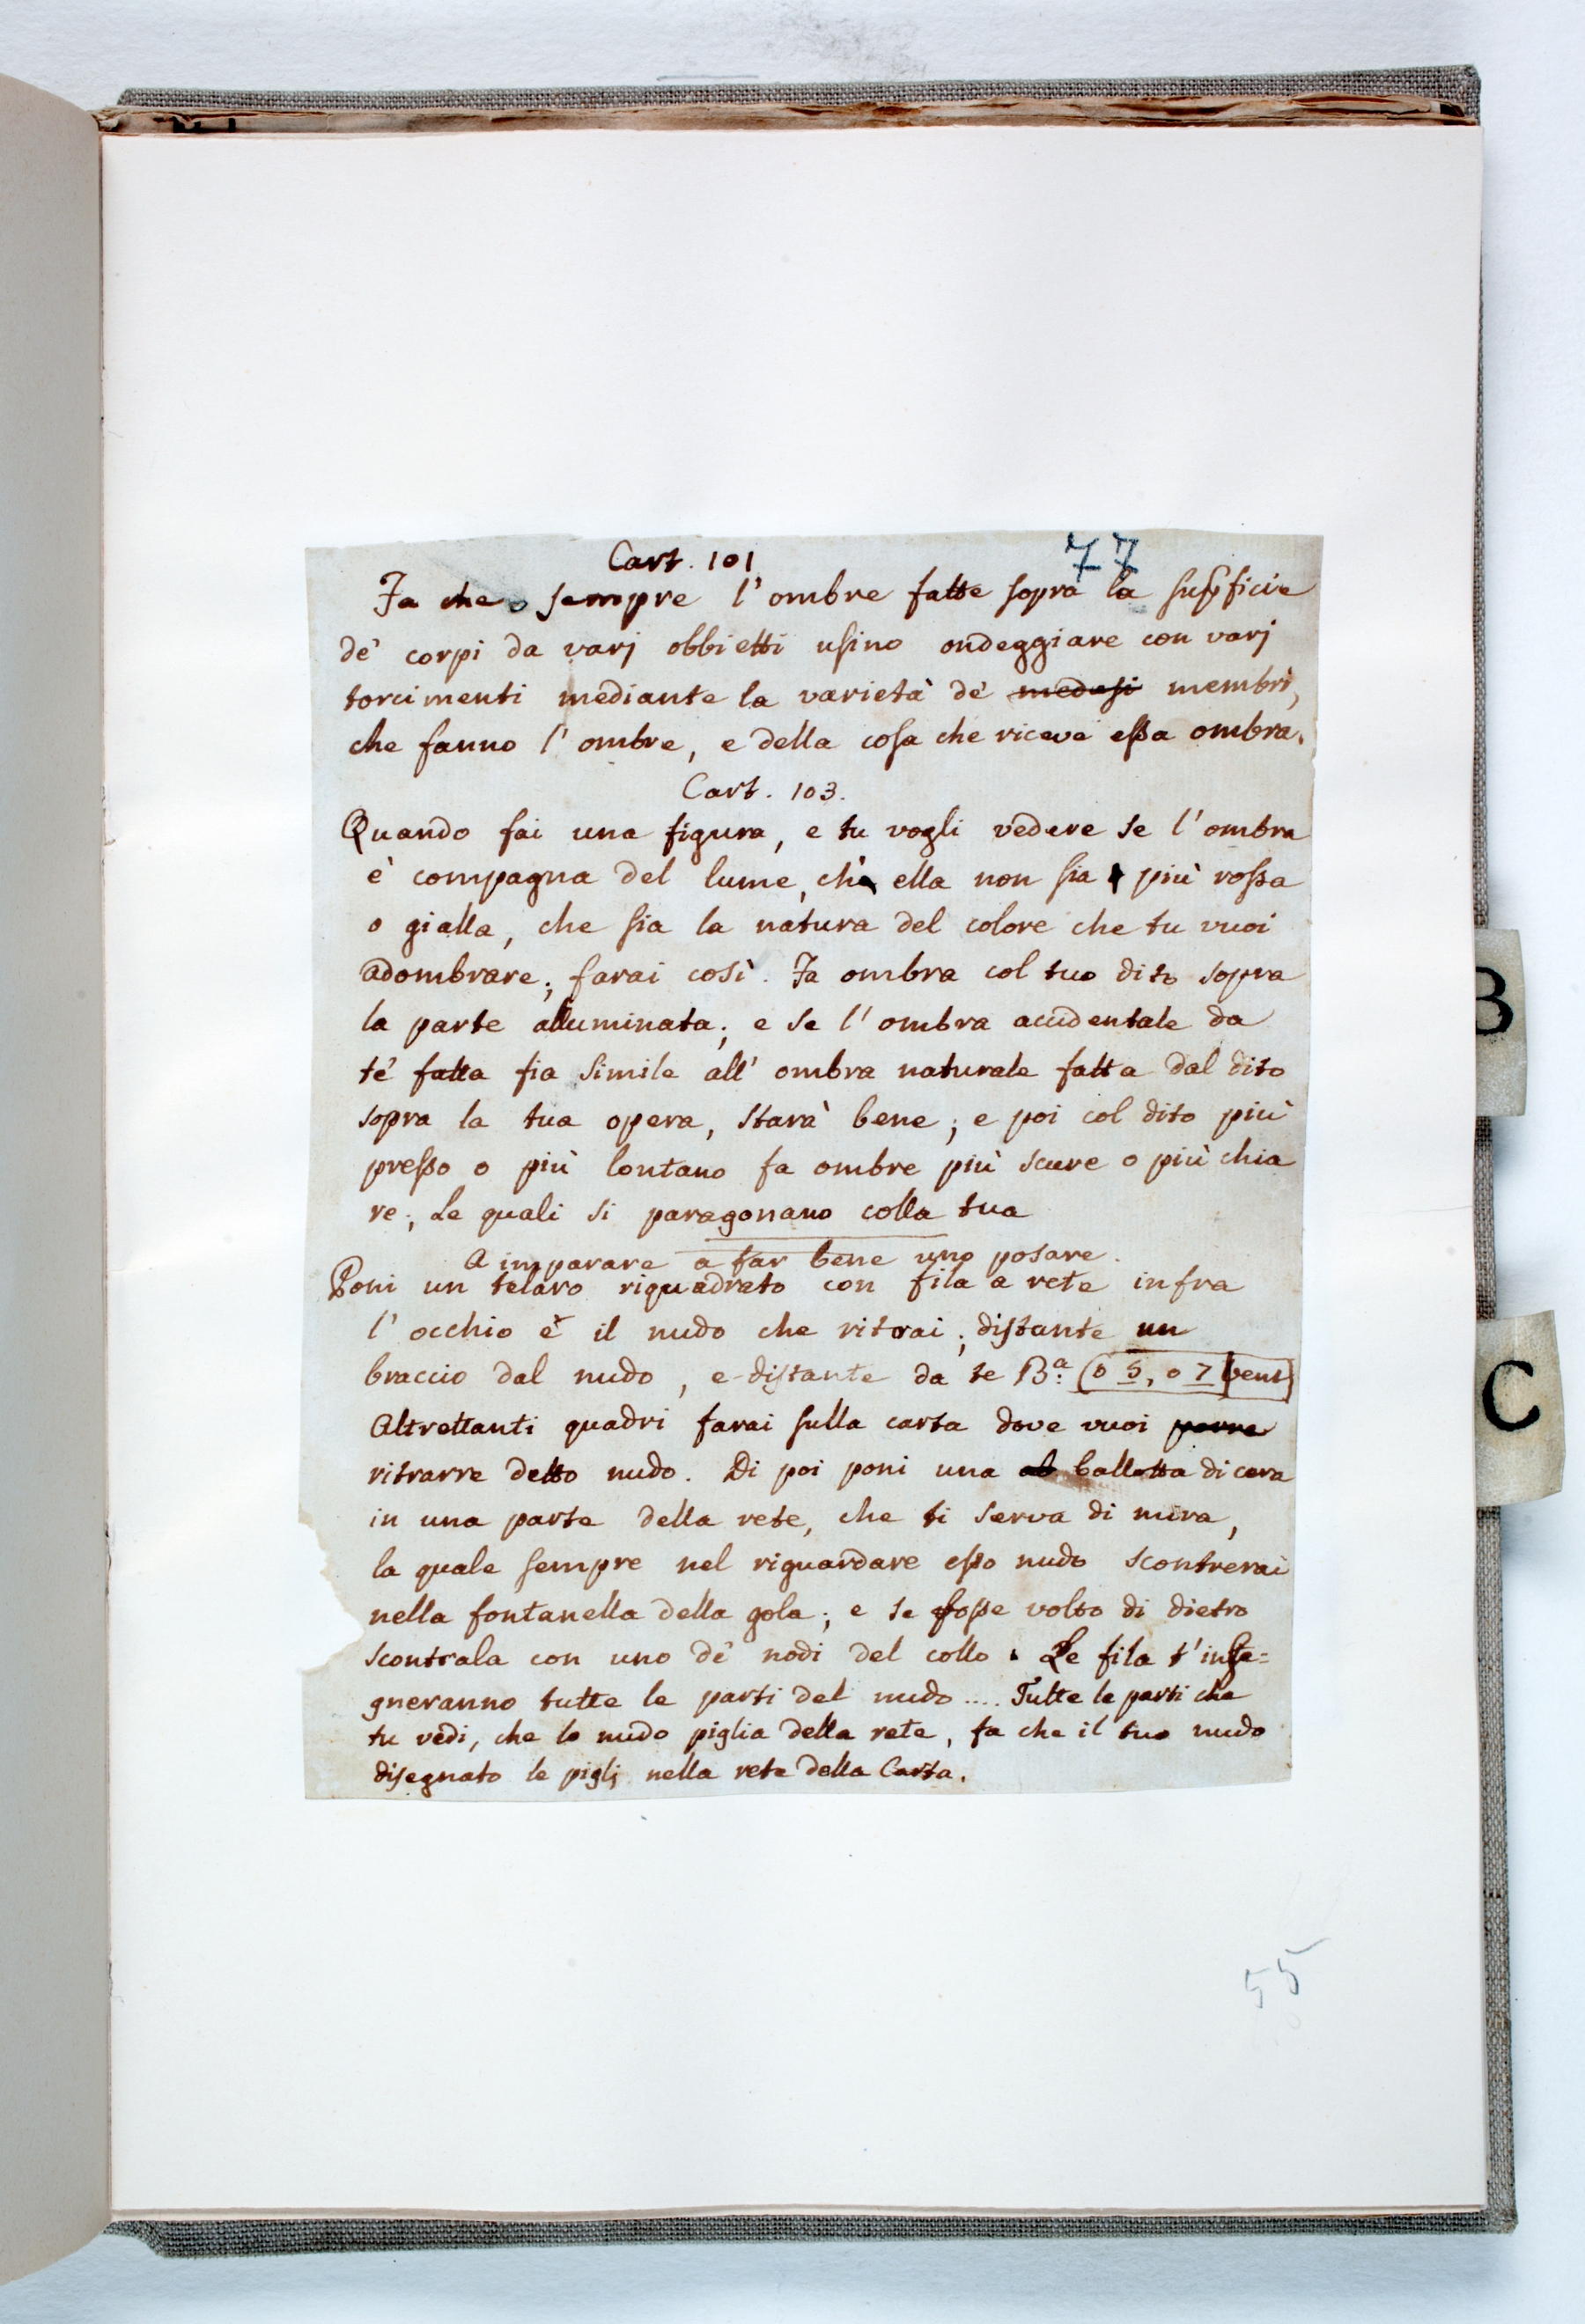 77
Cart. 101
Fa che sempre l'ombre fatte sopra la supficie
de' corpi da varj obbietti usino ondeggiare con varj
torcimenti mediante la varietà de' medesi membri,
che fanno l'ombre, e della cosa che riceve essa ombra.
Cart. 103.
Quando fai una figura, e tu vogli vedere se l'ombra
è compagna del lume, ch'ella non sia più rossa
o gialla, che sia la natura del colore che tu vuoi
adombrare; farai così. Fa ombra col tuo dito sopra
la parte alluminata; e se l'ombra accidentale da
te' fatta fia simile all'ombra naturale fatta dal dito
sopra la tua opera, starà bene; e poi col dito più
presso o più lontano fa ombre più scure o più chia
re; le quali si paragonano colla tua
A imparare a far bene uno posare.
Poni un telaro riquadrato con fila a rete infra
l'occhio è il nudo che ritrai; distante un
braccio dal nudo, e distante da te B.a (o 5, o 7
Altrettanti quadri farai sulla carta dove vuoi porre
ritrarre detto nudo. Di poi poni una ballotta di cera
in una parte della rete, che ti serva di mira,
la quale sempre nel riguardare esso nudo scontrerai
nella fontanella della gola; e se fosse volto di dietro
scontrala con uno de' nodi del collo. Le fila t'inse=
gneranno tutte le parti del nudo .... Tutte le parti che
tu vedi, che lo nudo piglia della rete, fa che il tuo nudo
disegnato le piglj nella rete della Carta.
55
B
C